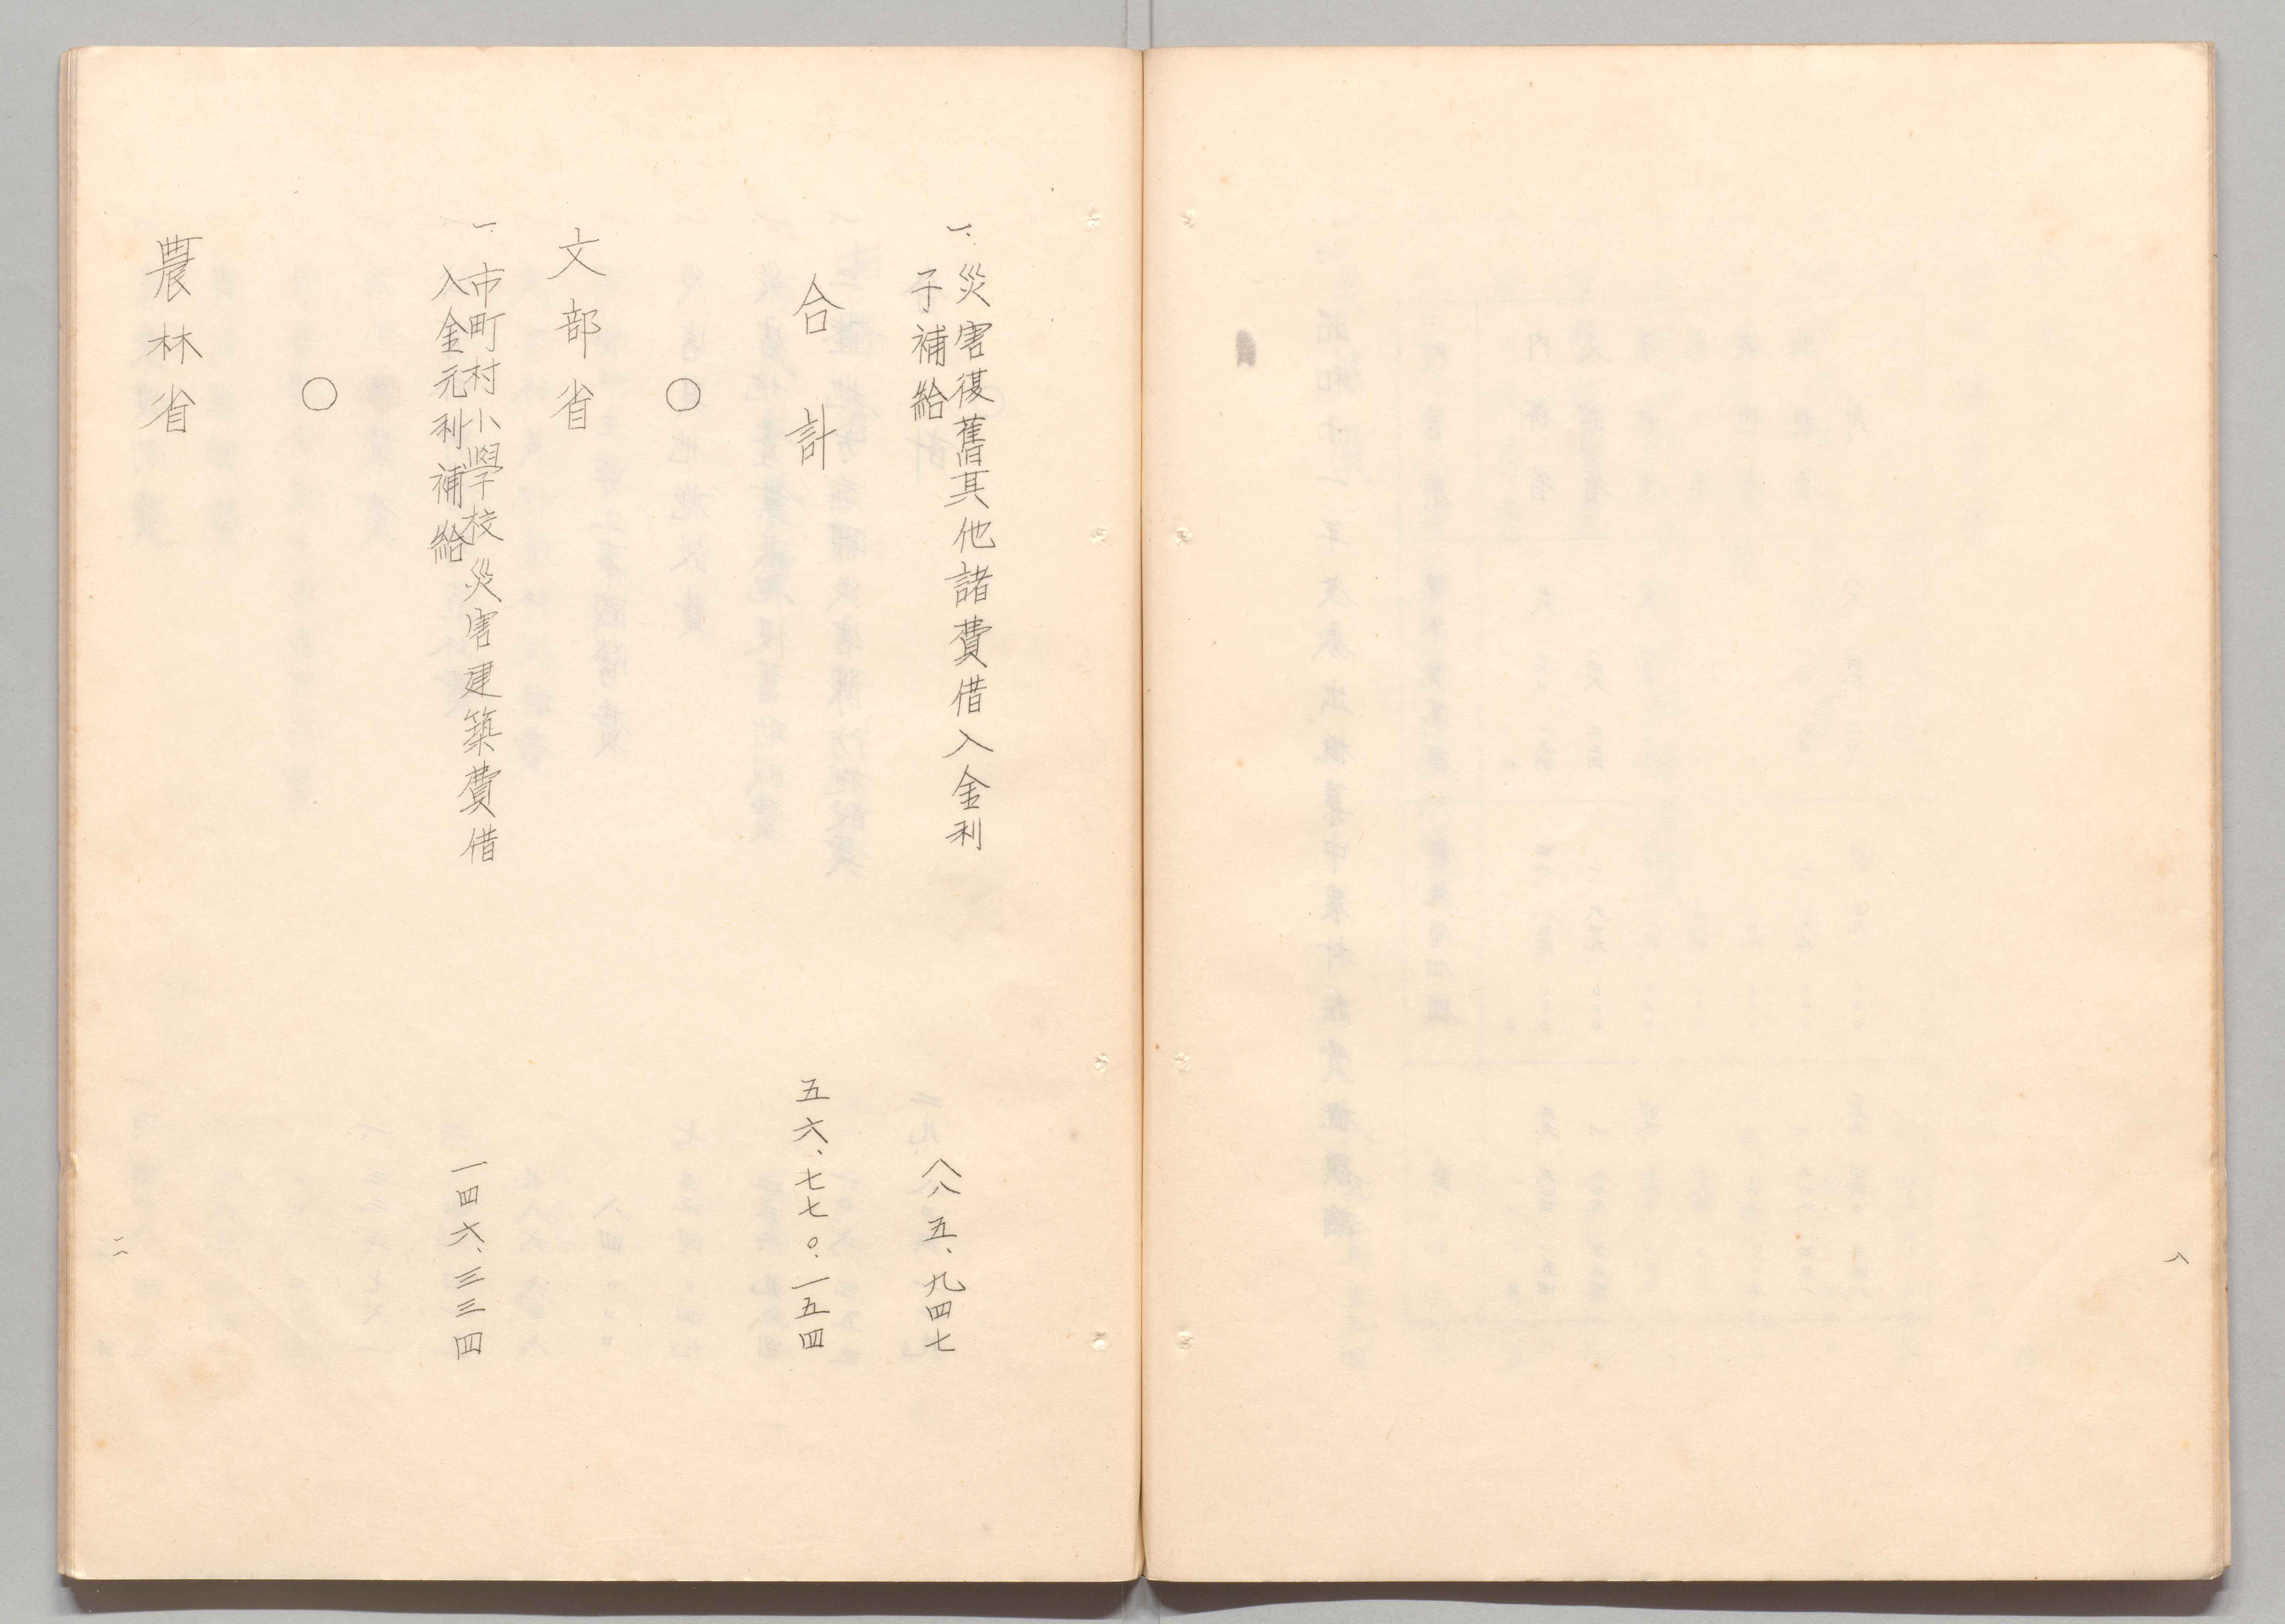 八
一、災害復舊其他諸費借入金利
子補給
八八五、九四七
合計
五六、七七〇、一五四
○
文部省
一、市町村小學校災害建築費借
入金元利補給
一四六、三三四
○
農林省